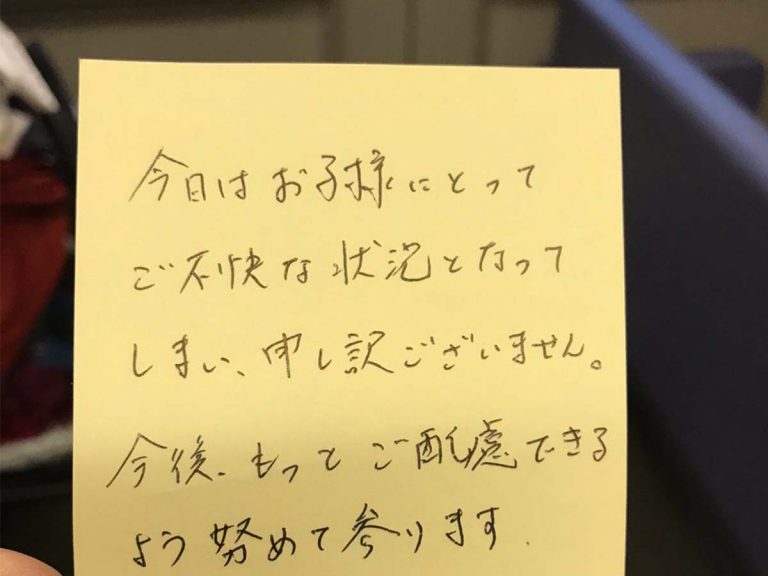 今日はお子様にとって
ご不快な状況となって
しまい、申し訳ございません。
今後、もっとご配慮できる
よう努めて参ります.